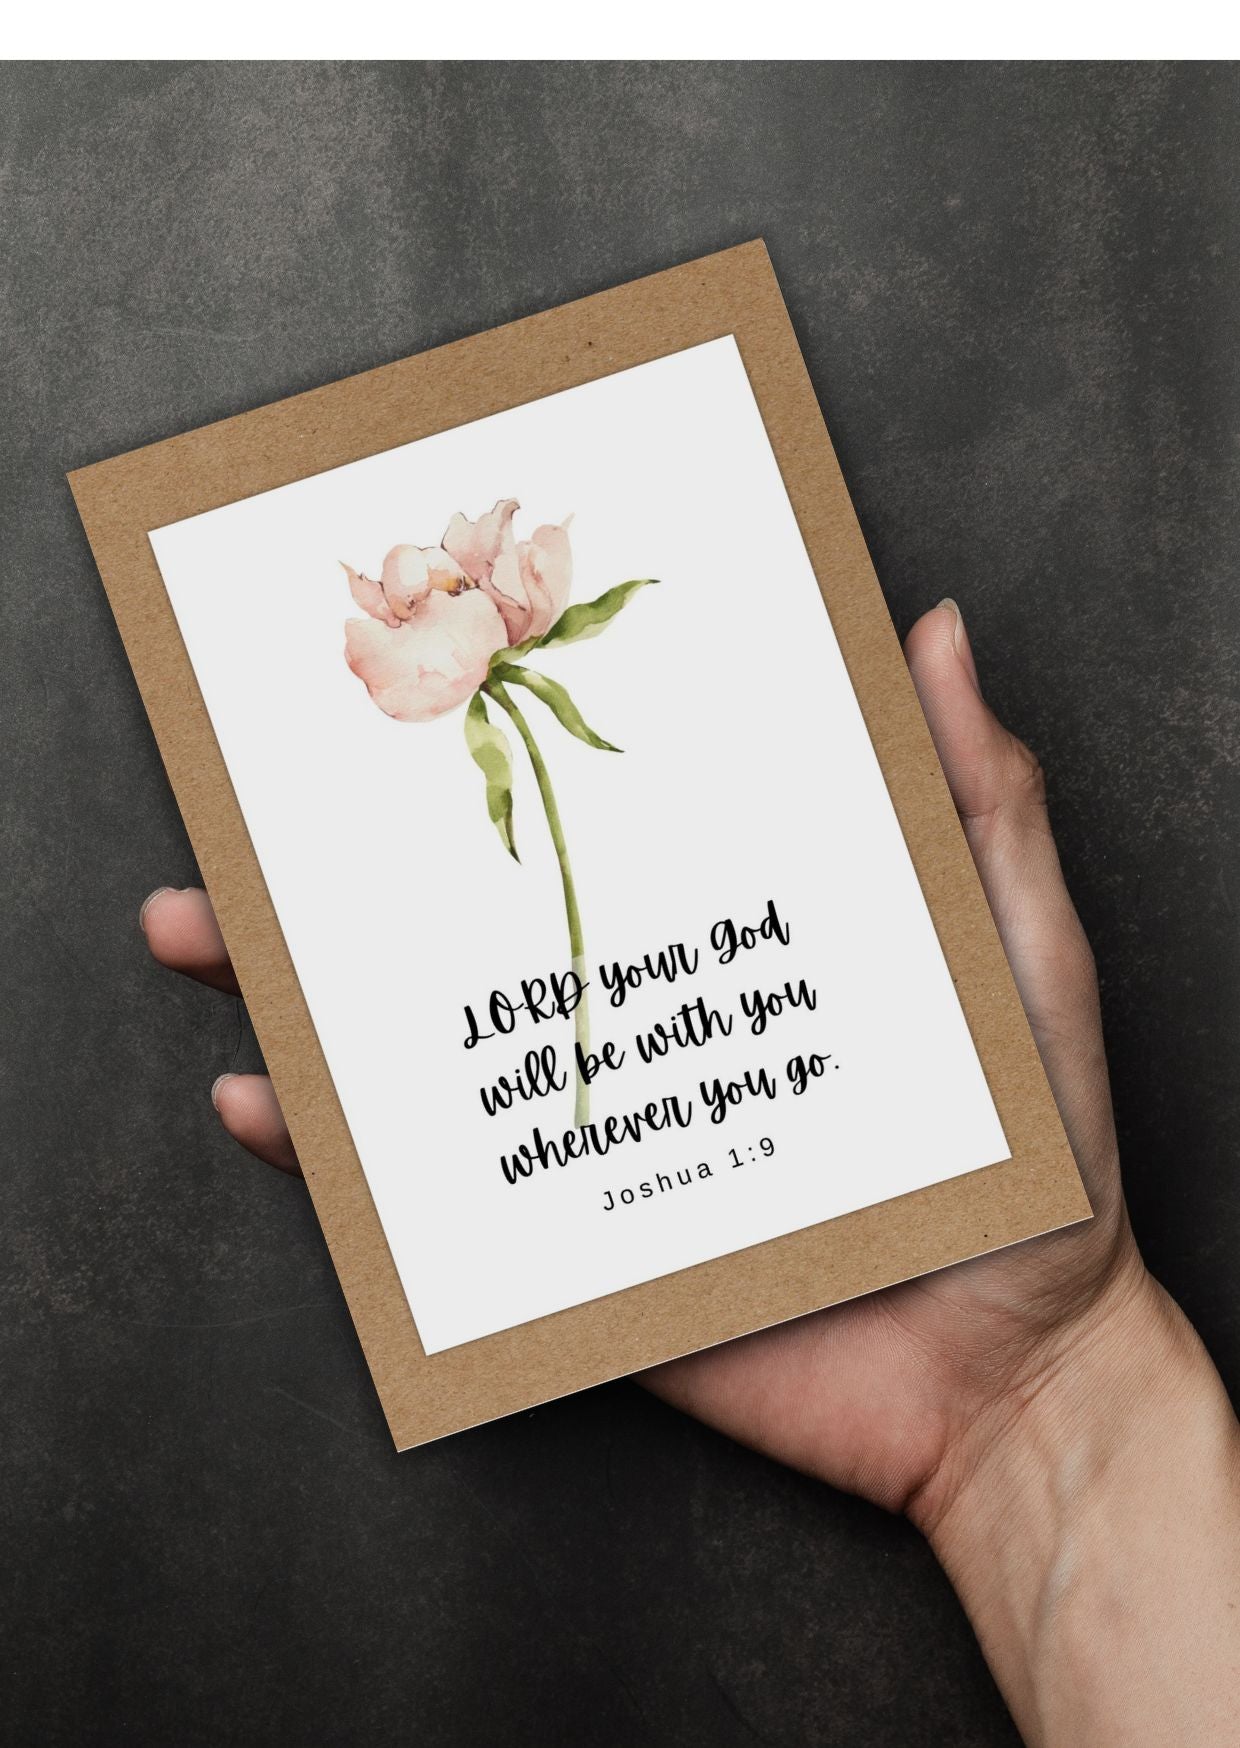 LORD your God
will be with you
wherever you go.
Joshua 1:9